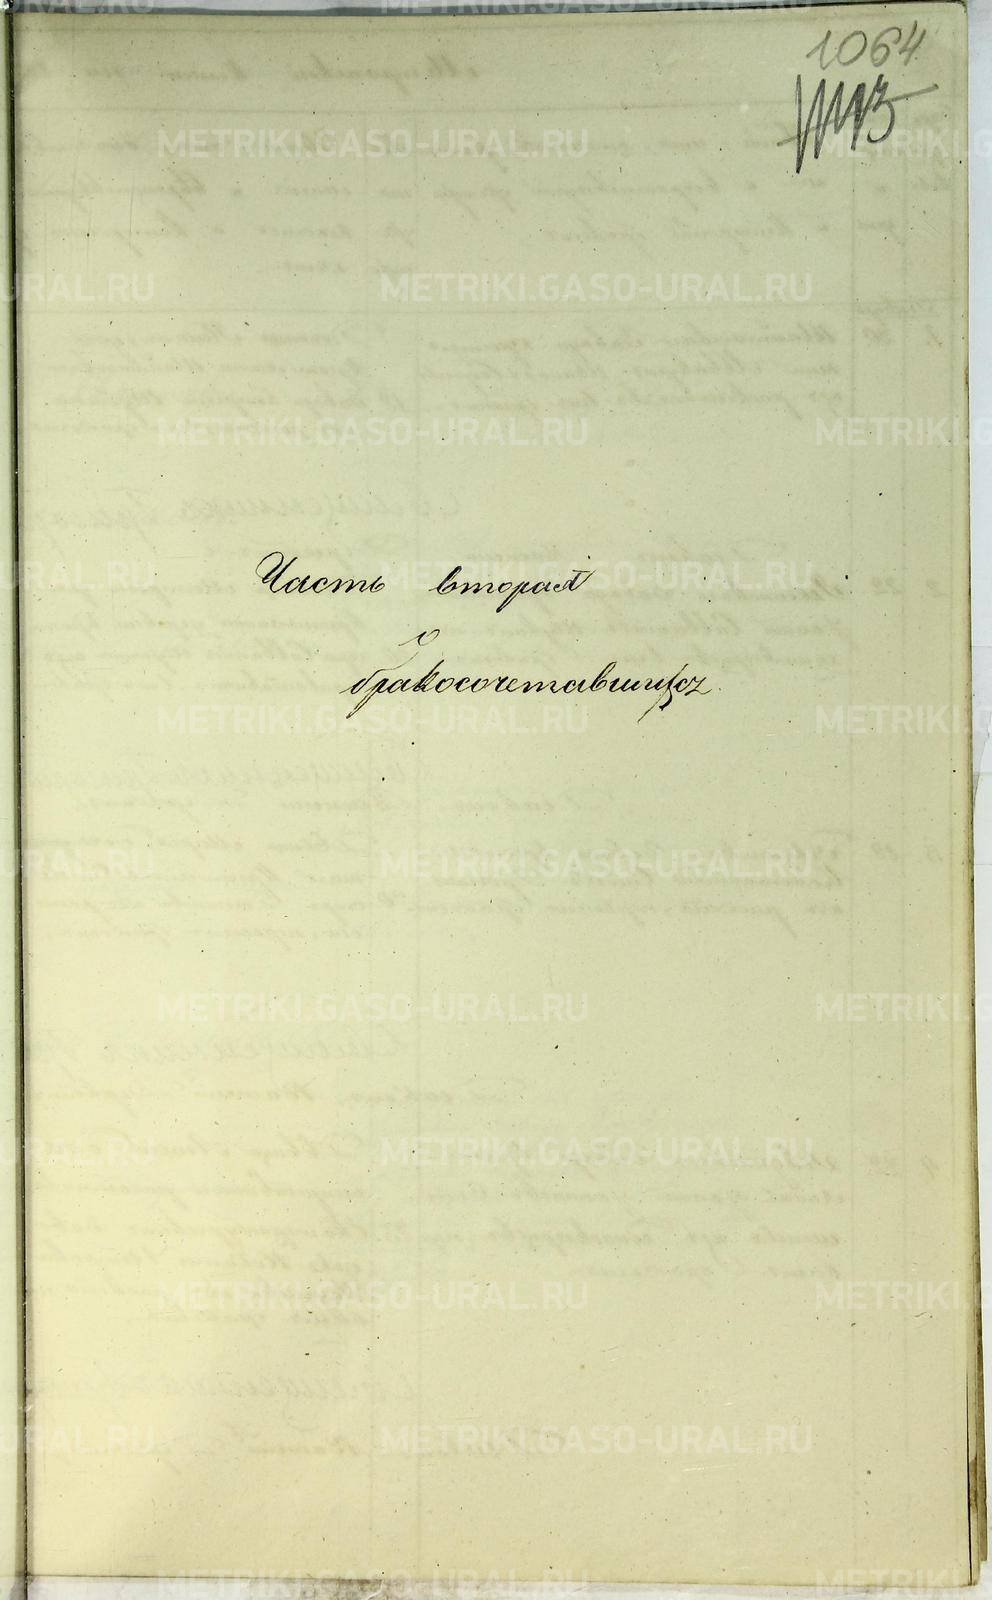 1064
Часть вторая
о
бракосочетавшихся.
METRIKI.GASO-URAL.RU